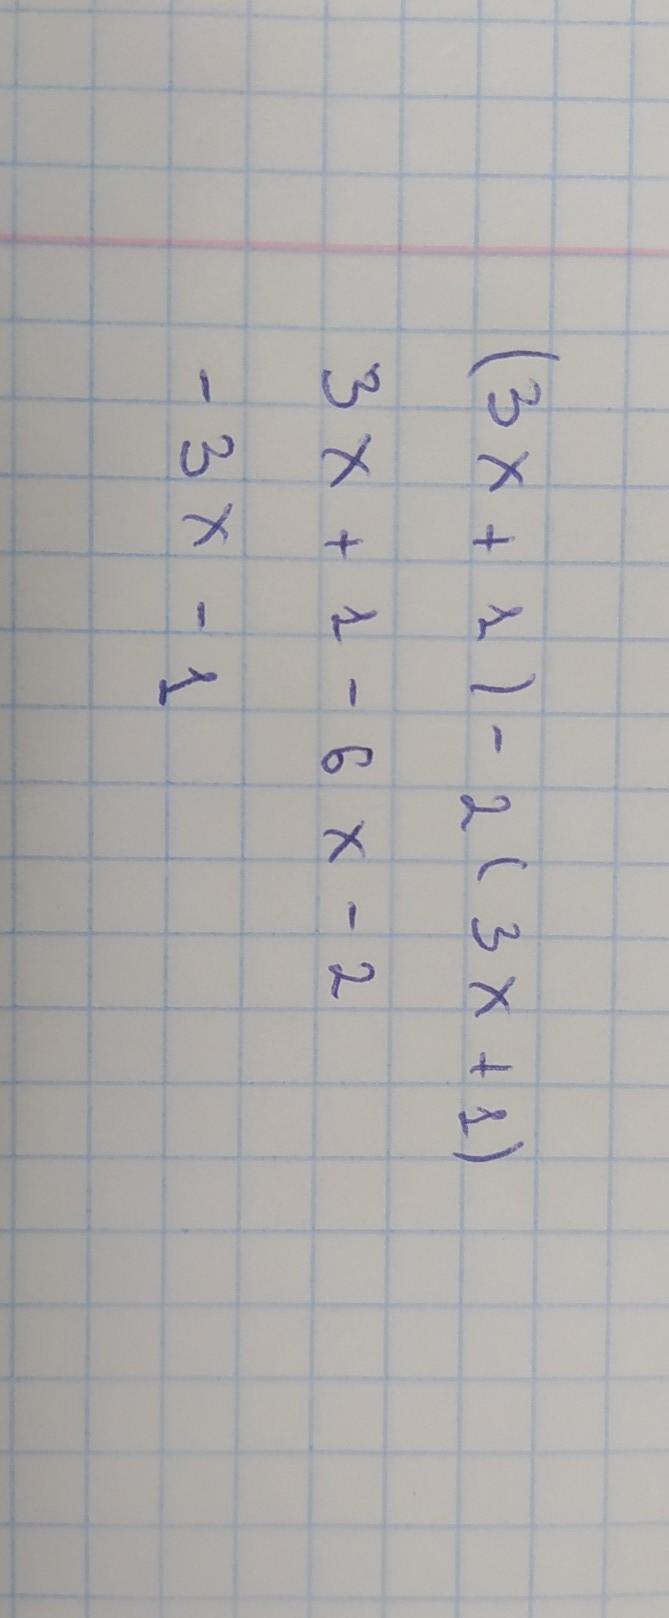 (3x+1)-2(3x+1)
3x+1-6x-2
-3x-1